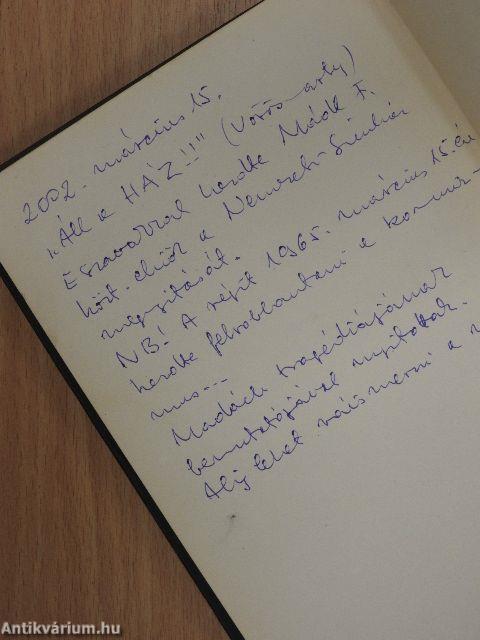 2002. március 15.
„Áll a HÁZ!!" (Vörösmarty)
E szavakkal kezdte Mádl F.
közt. elnök a Nemzeti Színház
megnyitását.
NB! A régit 1965. március 15-én
kezdte felrobbantani a kommuniz-
mus...
Madách tragédiájának
bemutatójával nyitottak.
Alig lehet ráismerni a
Antikvárium.hu